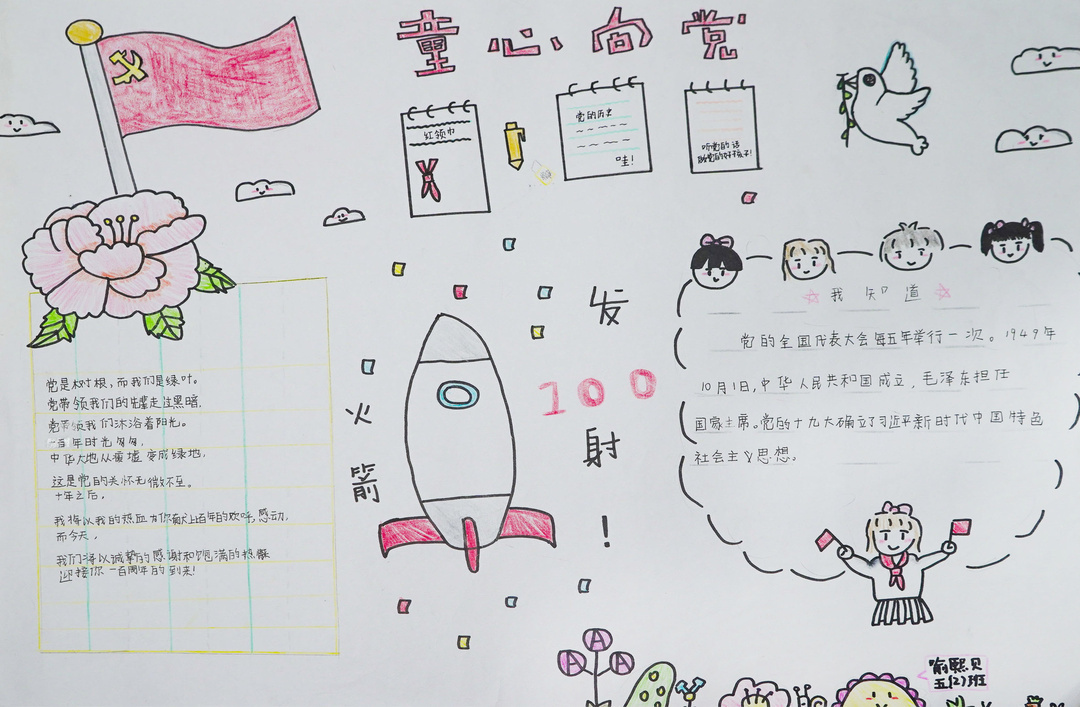 童心向党
红领巾
党的历史
哇！
听党的话
做党的好孩子！
党是树根，而我们是绿叶。
党带领我们的先辈走过黑暗，
党带领我们沐浴着阳光。
一百年时光匆匆，
中华大地从废墟变成绿地，
这是党的关怀无微不至。
十年之后，
我将以我的热血为你献上百年的欢呼，感动，
而今天，
我们将以诚挚的感谢和饱满的热
迎接你一百周年的到来！
火箭
发射！
100
我知道
党的全国代表大会每五年举行一次。1949年
10月1日，中华人民共和国成立，毛泽东担任
国家主席。党的十九大确立了习近平新时代中国特色
社会主义思想。
A
A
A
俞熙贝
五(2)班